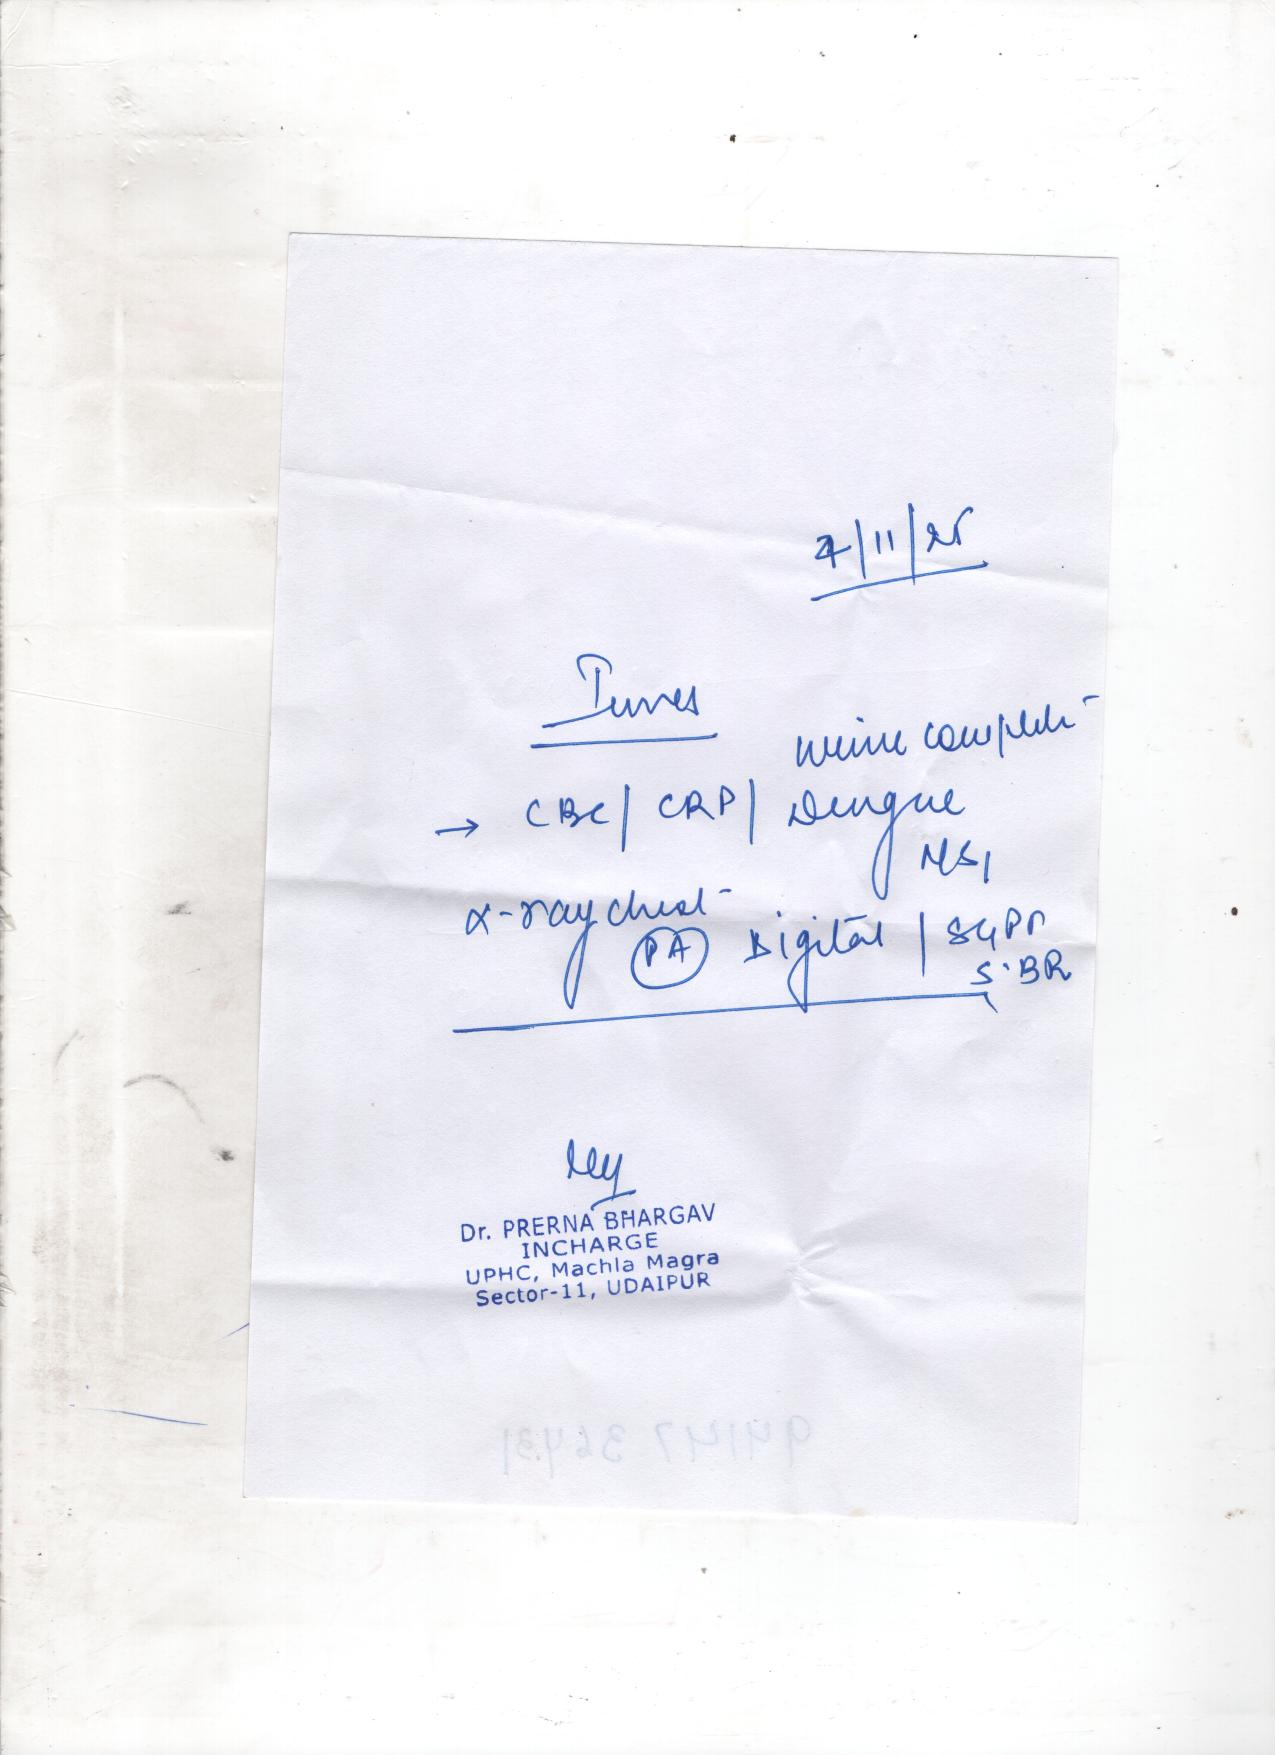 7/11/25
Invves
urine complete
→ CBC / CRP / Dengue
NS1
X-ray chest
PA Digital / SGPT
S.BR
Dr. PRERNA BHARGAV
INCHARGE
UPHC, Machla Magra
Sector-11, UDAIPUR